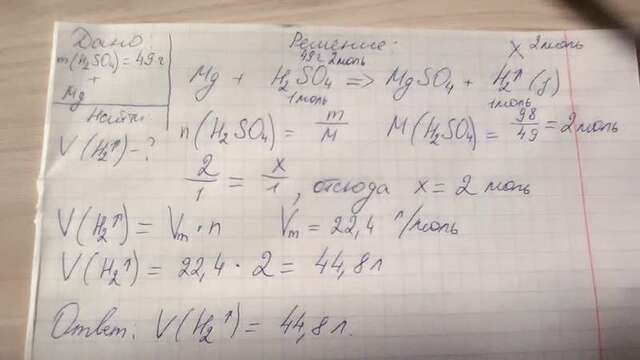 Дано:
m(H₂SO₄) = 49г
+
Mg
Найти:
V(H₂↑) - ?
Решение:
49г 2моль X 2моль
Mg + H₂SO₄ => MgSO₄ + H₂↑ (г)
1моль 1моль
n(H₂SO₄) = m/M M(H₂SO₄) = 98/49 = 2моль
2/1 = x/1, отсюда x = 2 моль
V(H₂↑) = Vm · n Vm = 22,4 л/моль
V(H₂↑) = 22,4 · 2 = 44,8л
Ответ: V(H₂↑) = 44,8л.